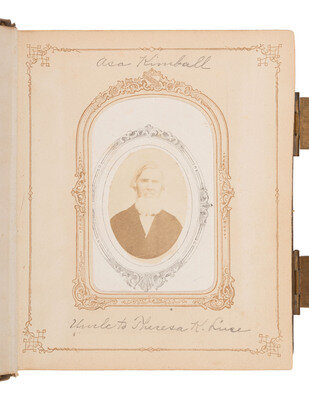 Asa Kimball
Uncle to Theresa K. Luce